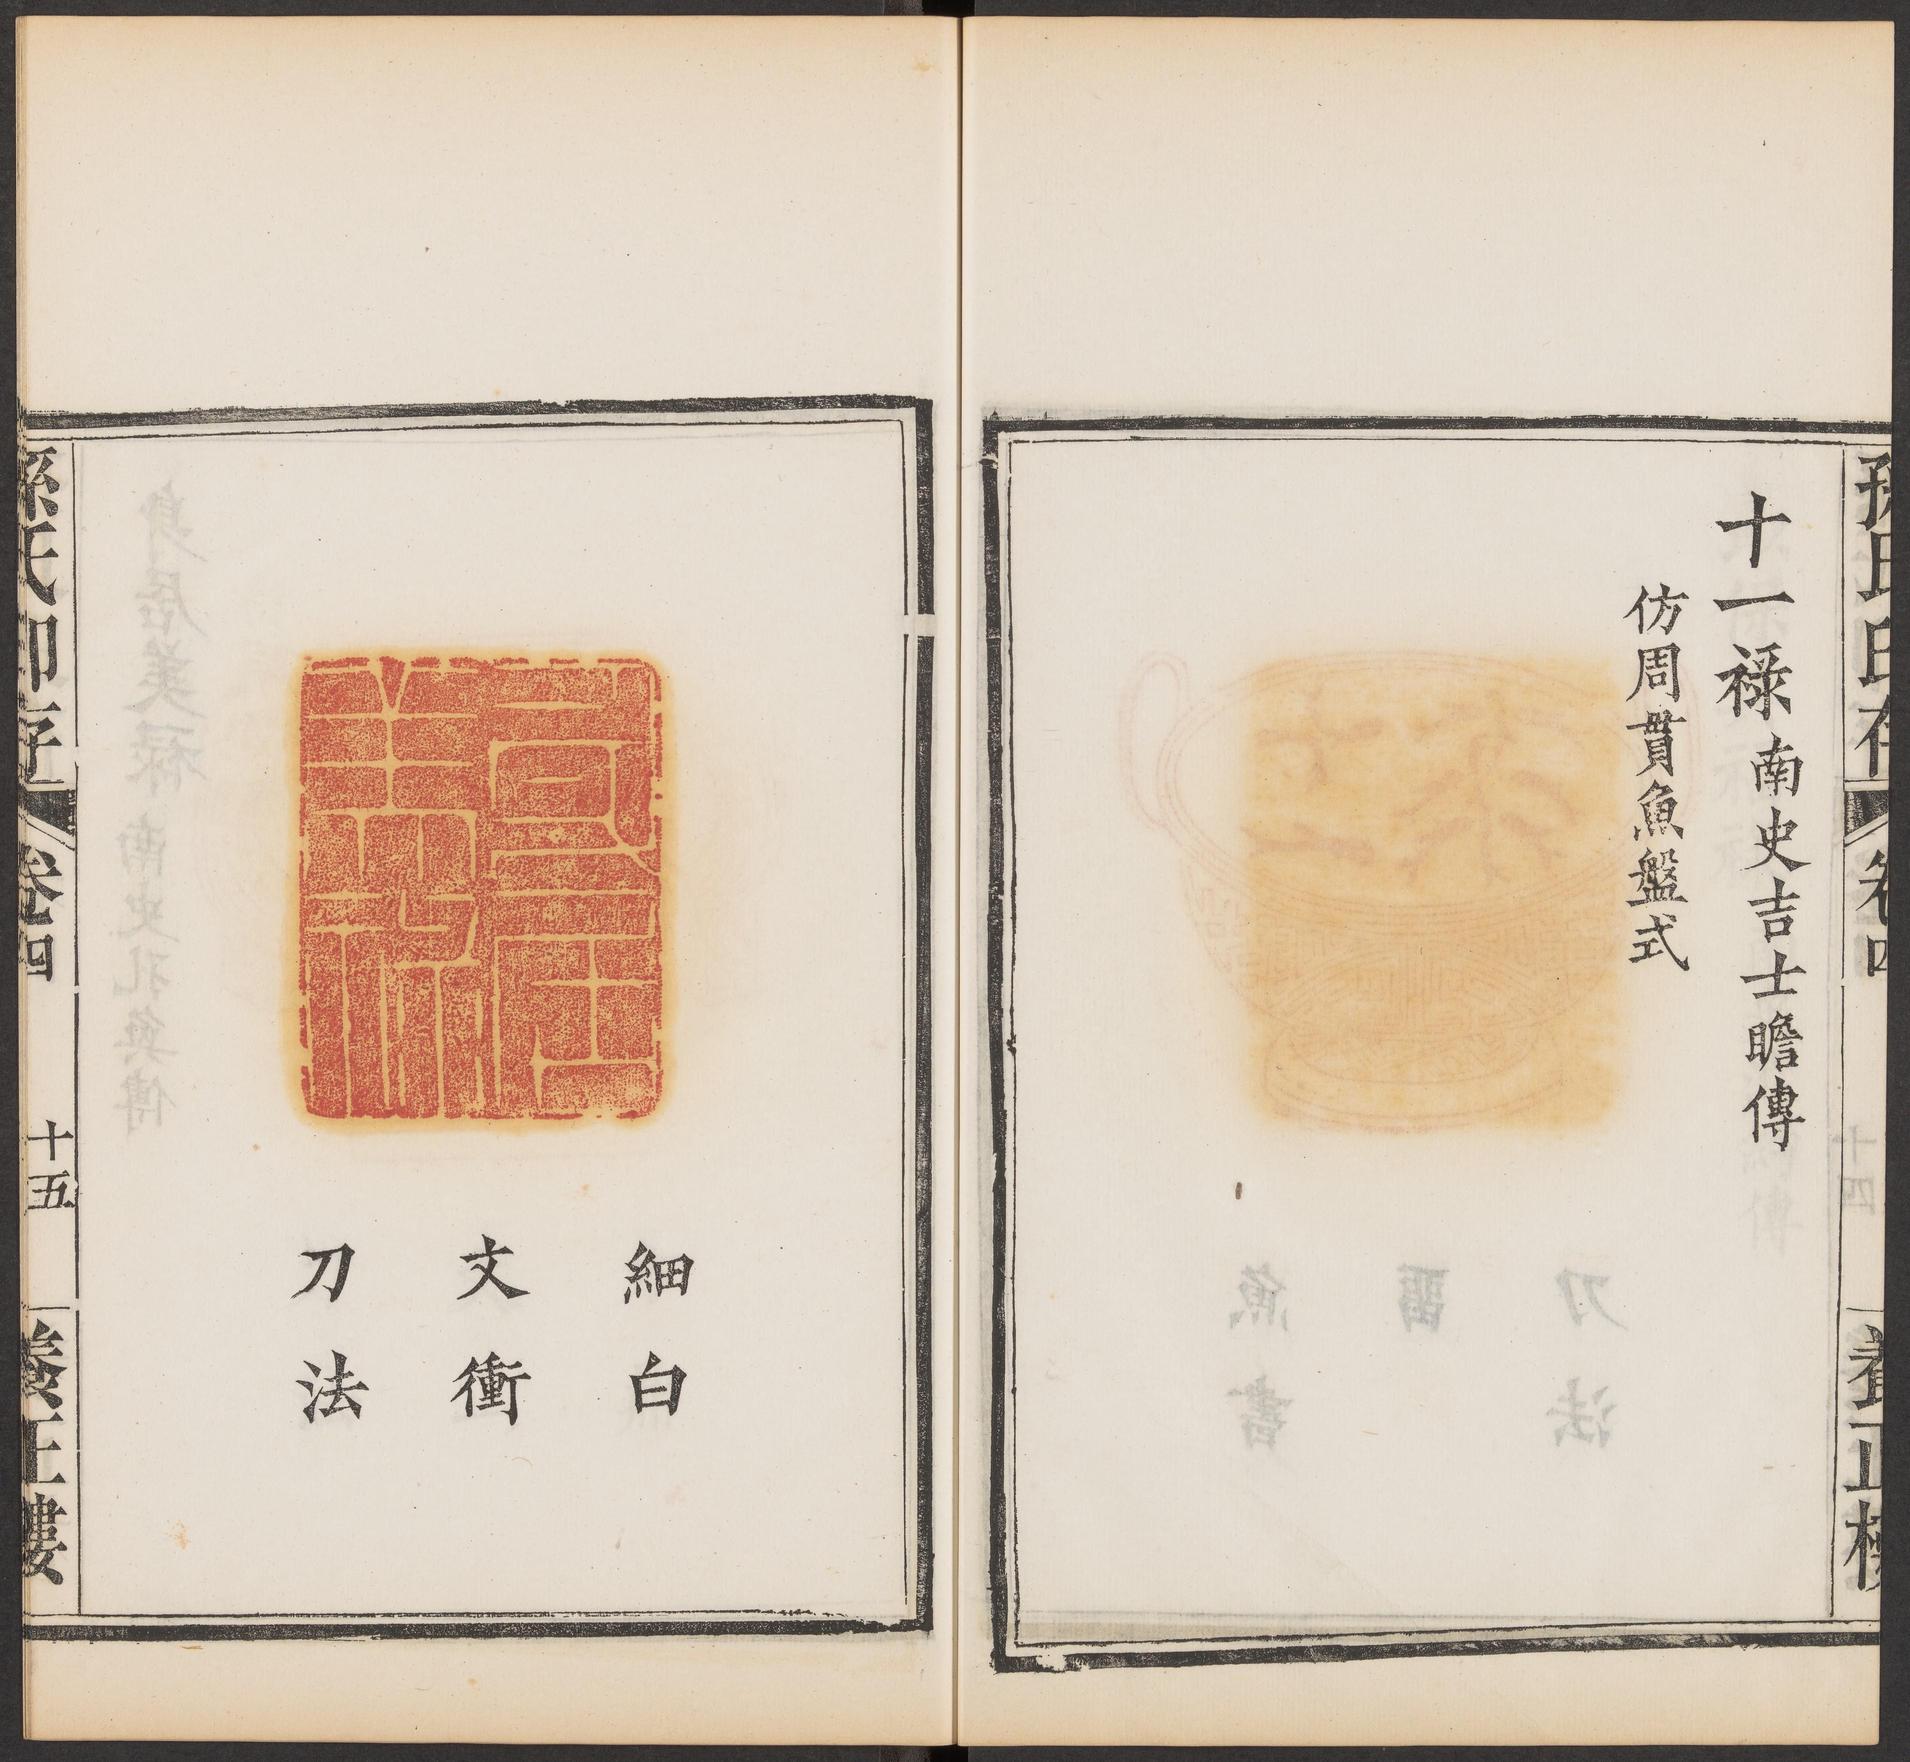 孫氏印存 卷四 養正樓
十一祿 南史吉士瞻傳
仿周貫魚盤式
身居美祿
細白
文衝
刀法
孫氏印存 卷四 十五 養正樓